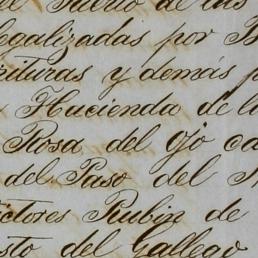 el Puerto de las
legalizadas por
rituras y demás
Hacienda de la
Rosa del Ojo
del Paso del
ictores Rubin de
sto del Gallego